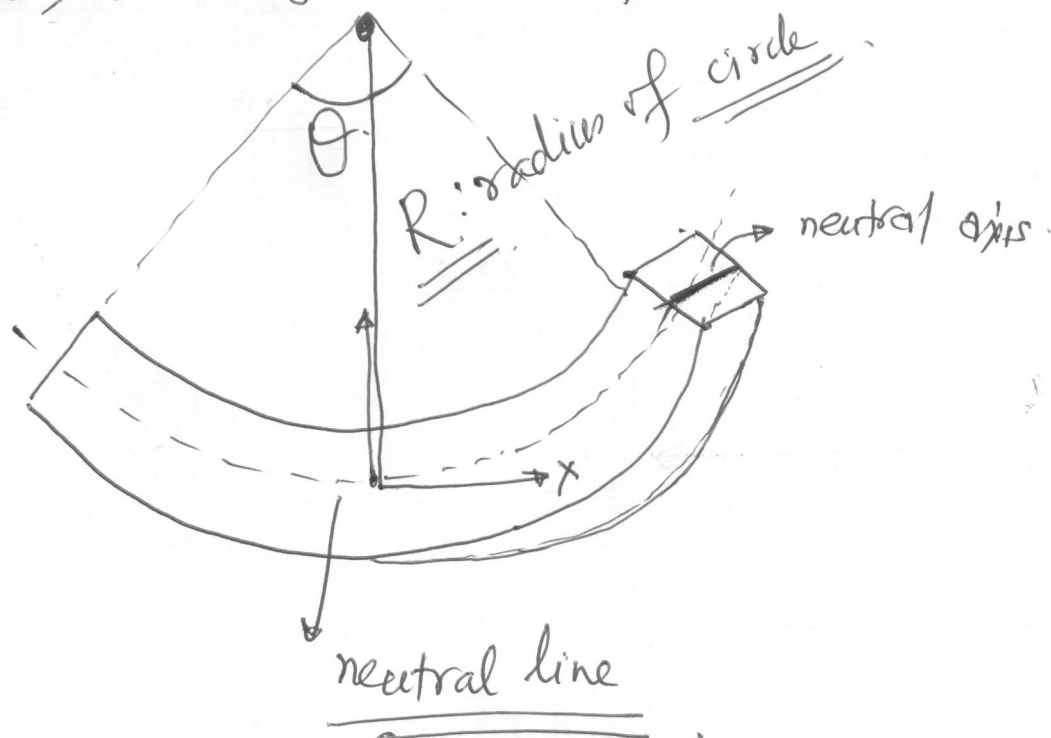 θ
R: radius of circle
neutral axis
x
neutral line